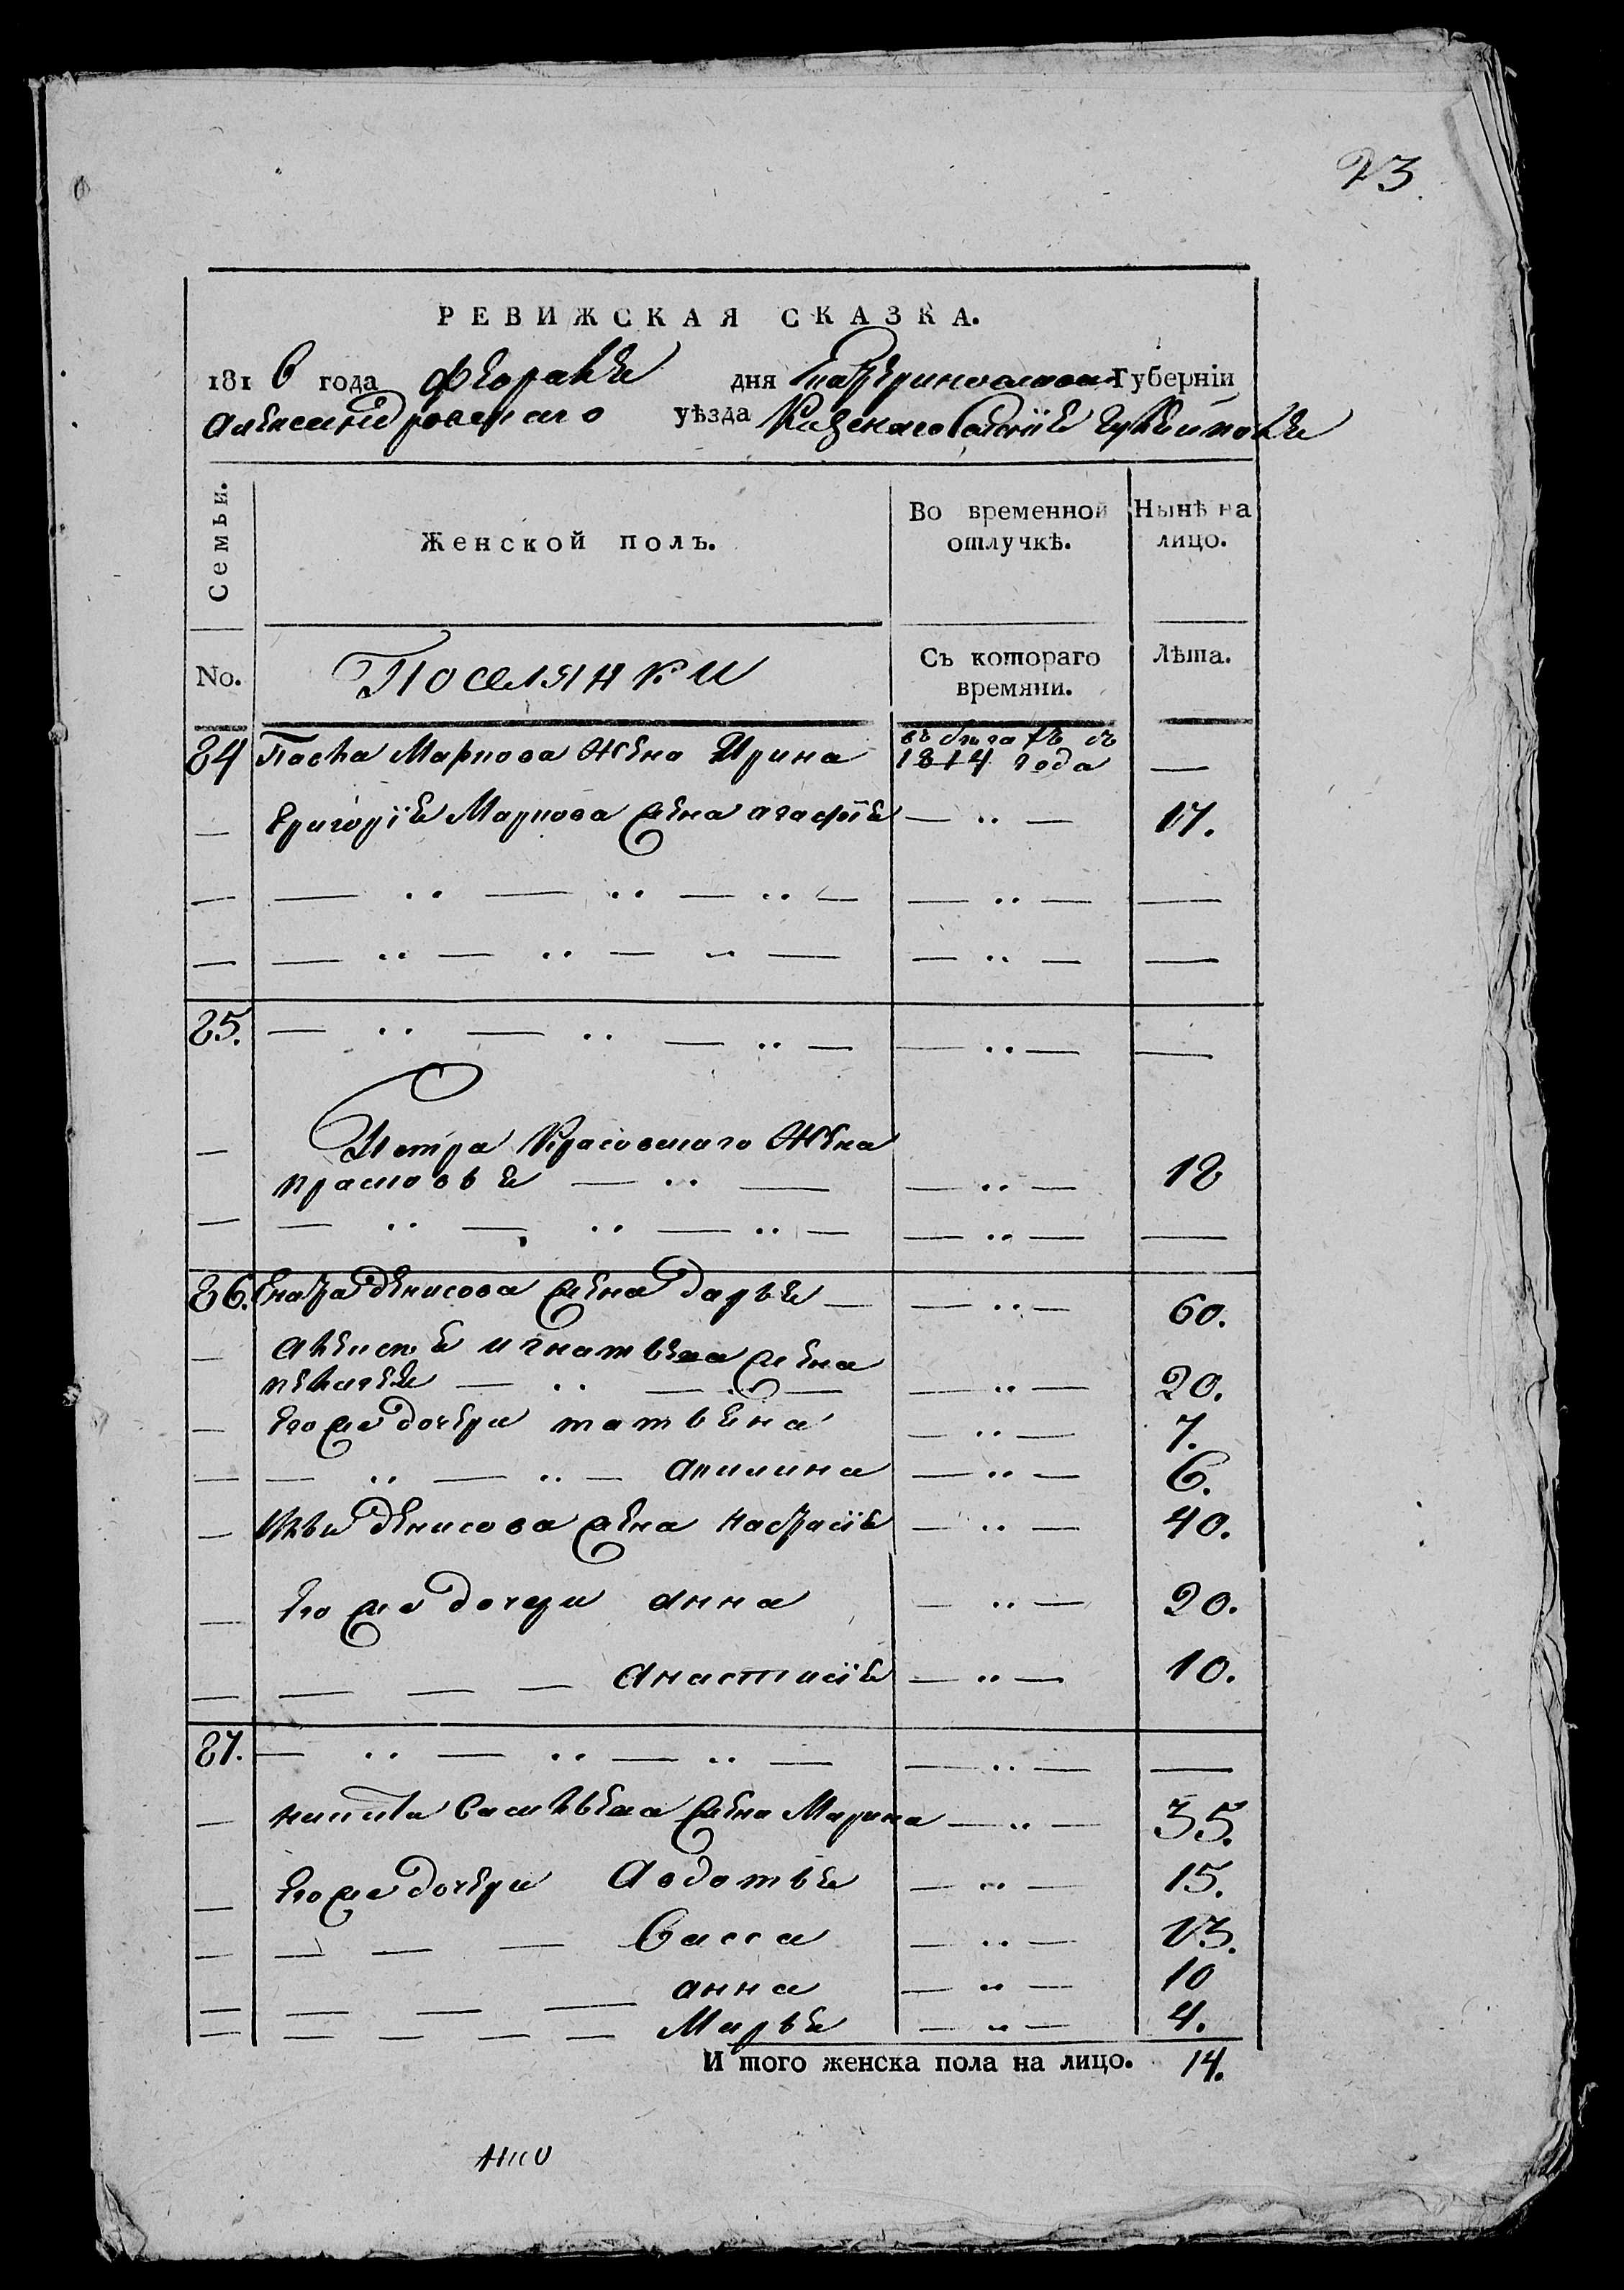 23.
РЕВИЖСКАЯ СКАЗКА.
1816 года февраля дня Екатеринославской Губерніи
Александровскаго уѣзда Казеннаго Селенія
Семьи.
Женской полъ.
Во временной отлучкѣ.
Нынѣ на лицо.
No.
Поселянки
Съ котораго времяни.
Лѣта.
84 Павла Маркова жена Ирина въ бѣгахъ съ 1814 года —
— Григорія Маркова жена агафія — .. — 17.
— — .. — .. — .. — — .. — —
— — .. — .. — .. — — .. — —
85. — .. — .. — .. — — .. — —
— Петра Красовскаго жена
прасковья — .. — — .. — 18
— — .. — .. — .. — — .. — —
86. Игната денисова жена дарья — — .. — 60.
— Алексѣя игнатьева жена
пелагея — .. — .. — — .. — 20.
— его же дочери татьяна — .. — 7.
— — .. — .. — акилина — .. — 6.
— Ильи денисова жена настасія — .. — 40.
— его же дочери анна — .. — 20.
— — — — анастасія — .. — 10.
87. — .. — .. — .. — — .. — —
— никиты васильева жена Марина — .. — 35.
— его же дочери Авдотья — .. — 15.
— — — — Васса — .. — 13.
— — — — анна — .. — 10
— — — — — Марья — .. — 4.
И того женска пола на лицо. 14.